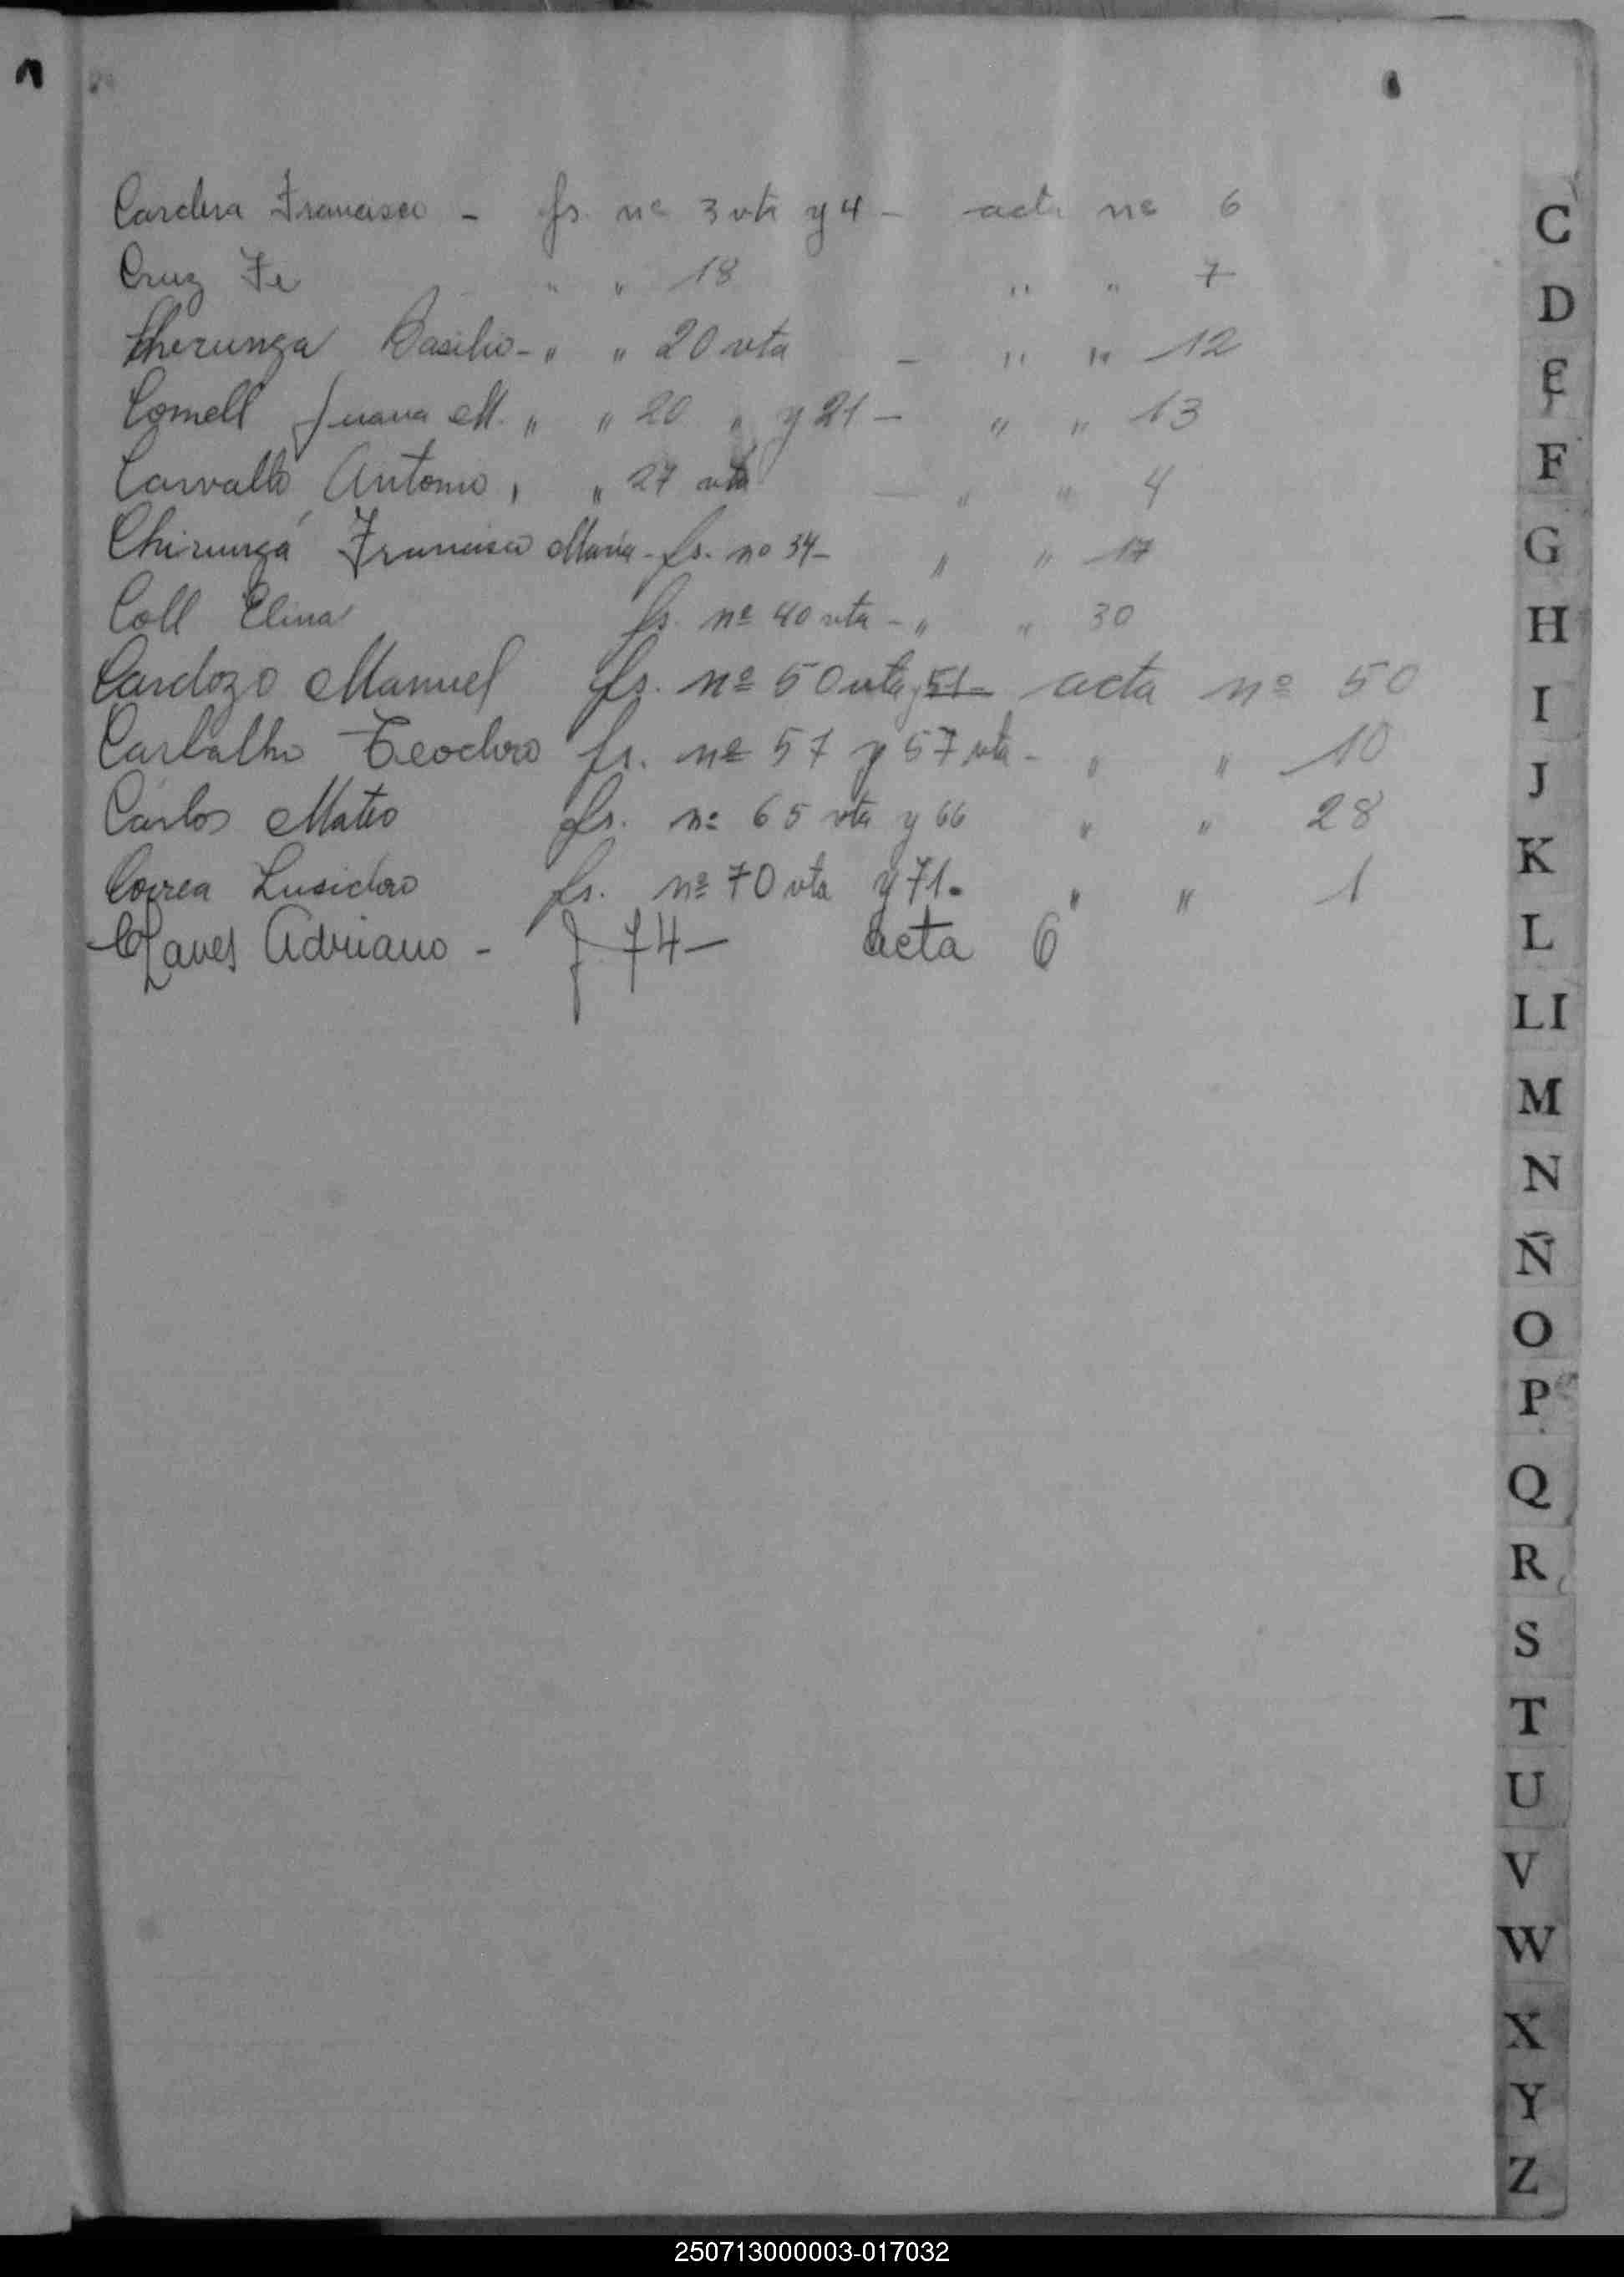 Cardera Francisco - fs. nº 3 vta y 4 - acta nº 6
Cruz Fe " " 18 " " 7
Cherunga Basilio - " " 20 vta - " " 12
Comell Juana M. " " 20 " y 21 - " " 13
Carvallo Antonio " " 27 vta - " " 4
Chirunga Francisca Maria - fs. nº 34 - " " 17
Coll Elina fs. nº 40 vta - " " 30
Cardozo Manuel fs. nº 50 vta y 51 - acta nº 50
Carbalho Teodoro fs. nº 57 y 57 vta - " " 10
Carlos Mateo fs. nº 65 vta y 66 " " 28
Correa Lusidoro fs. nº 70 vta y 71. " " 1
Chaves Adriano - f 74 - acta 6
C
D
E
F
G
H
I
J
K
L
LI
M
N
Ñ
O
P
Q
R
S
T
U
V
W
X
Y
Z
250713000003-017032